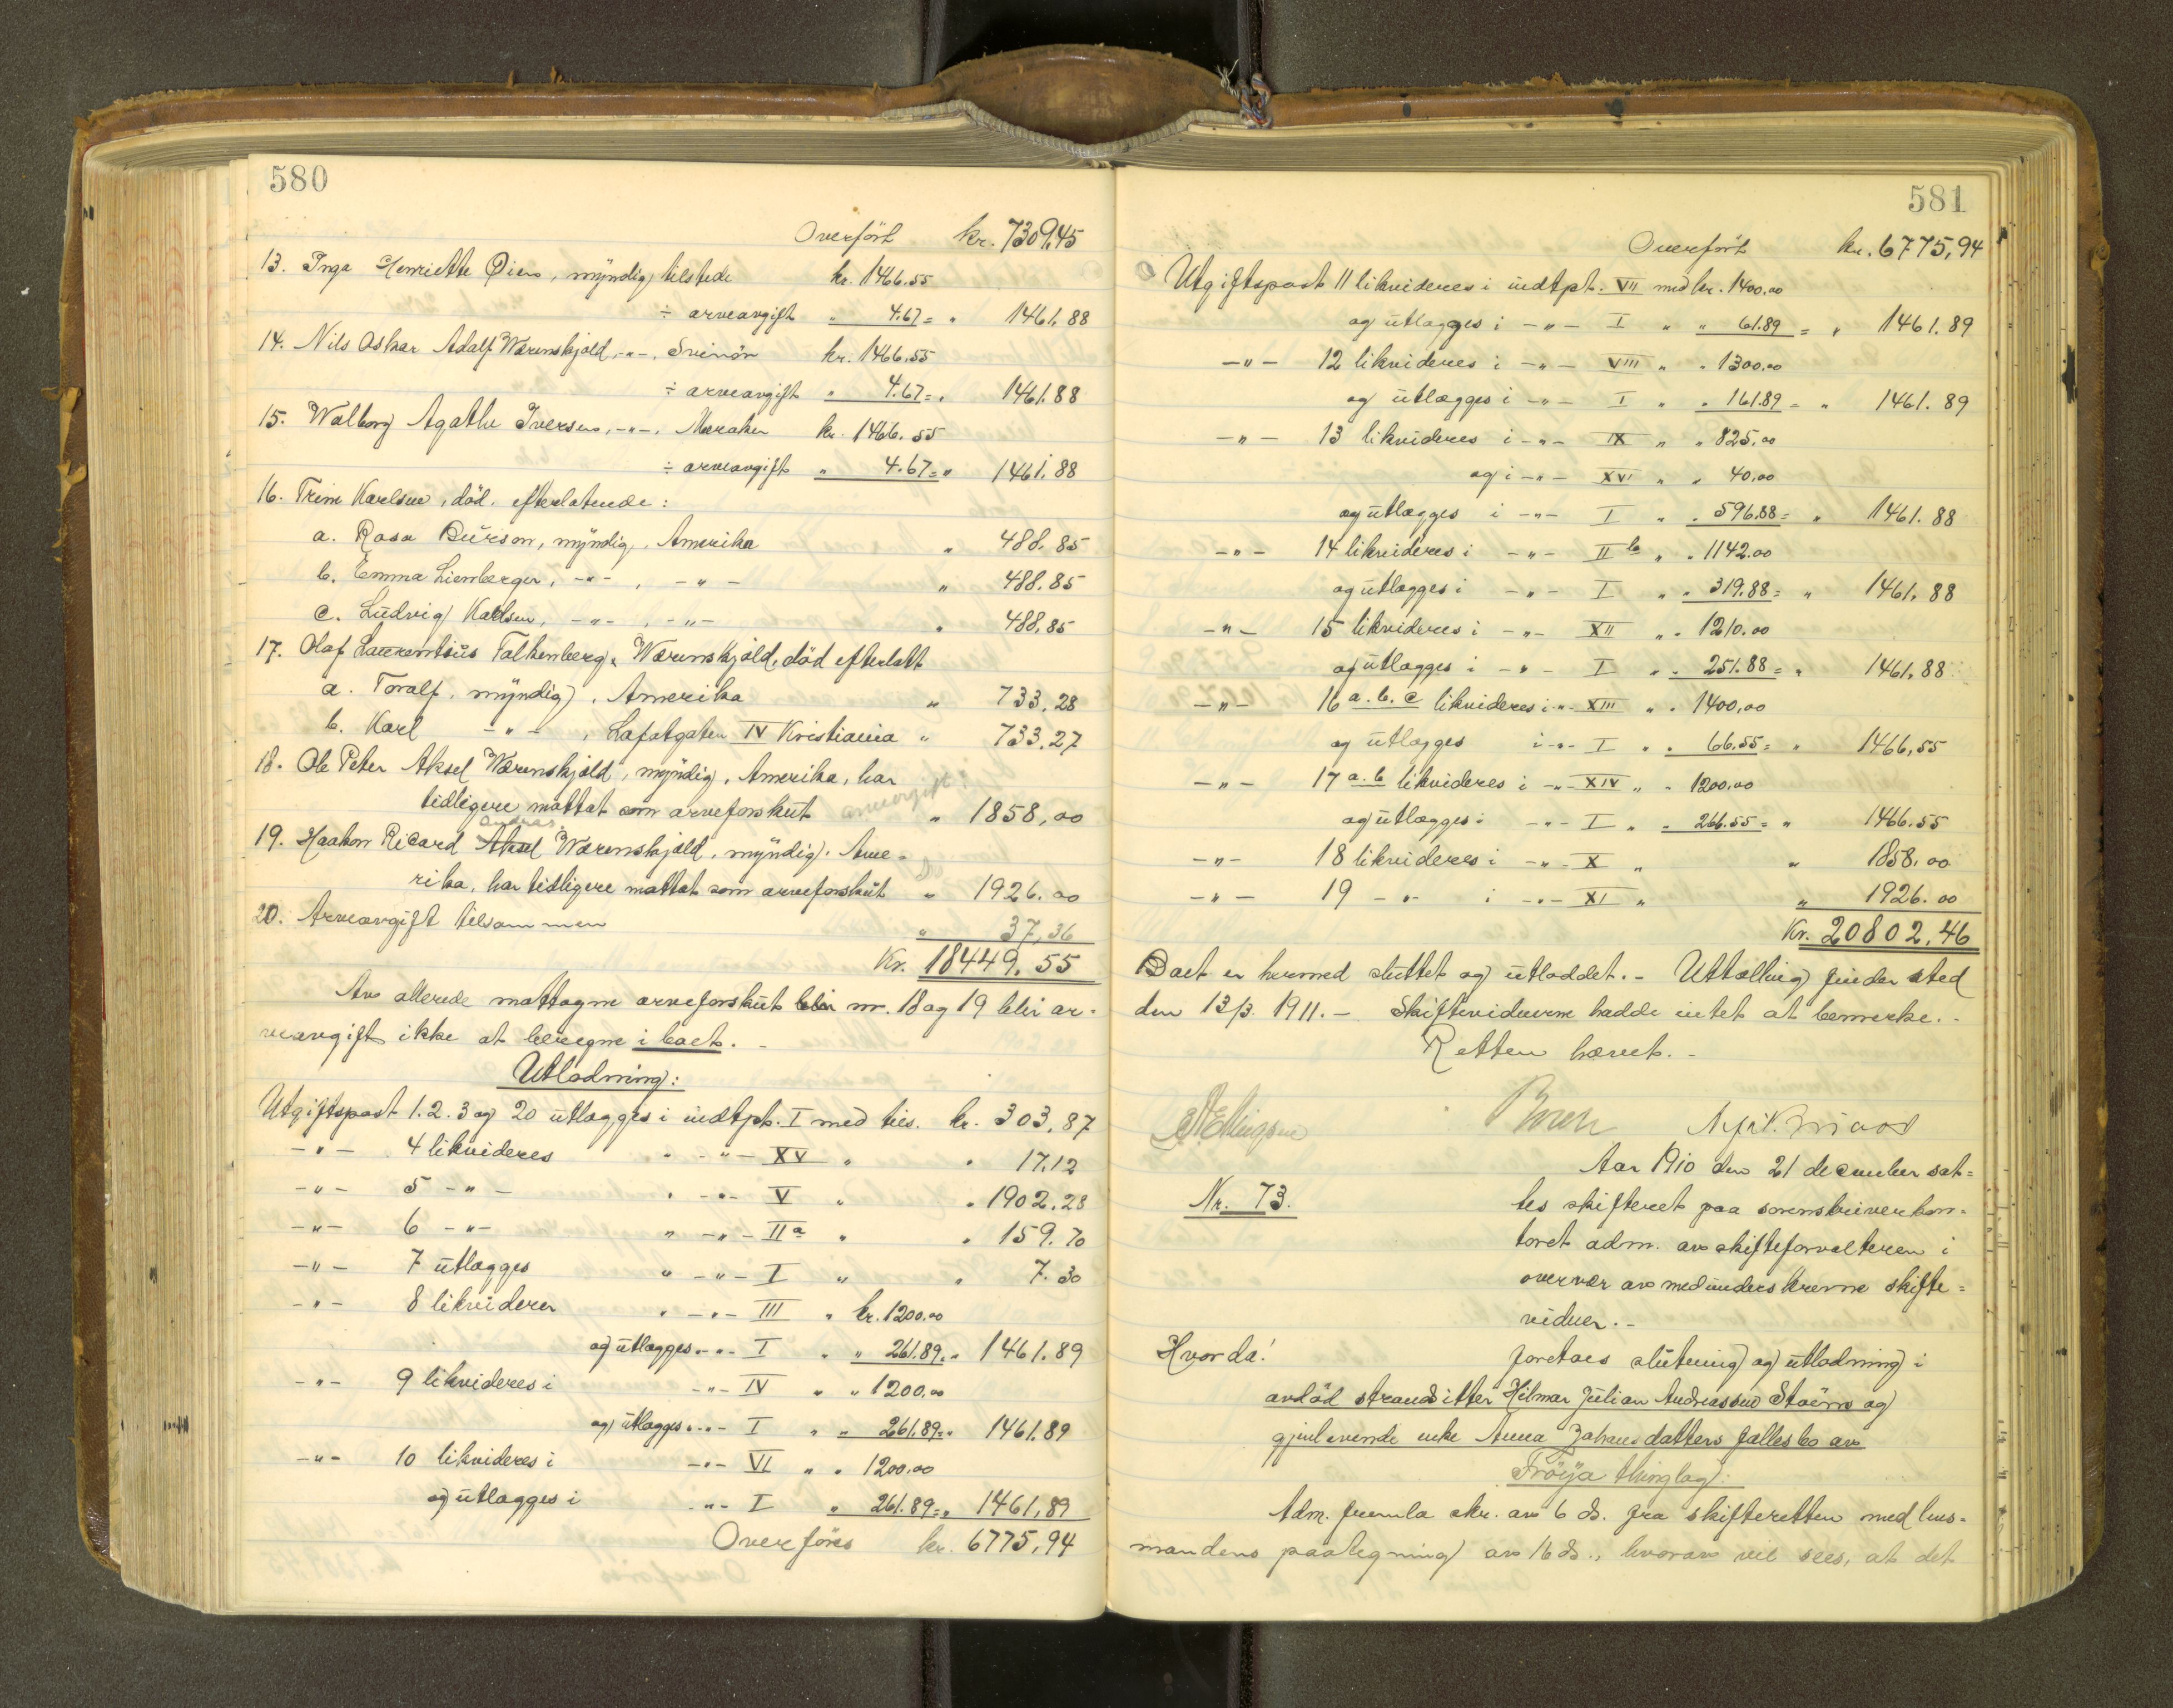 580
Overført kr. 7309,45
13. Inga Henriette Øien, myndig, tilstede kr. 1466.55
÷ arveavgift " 4.67 = " 1461.88
14. Nils Oskar Adalf Wærenskjold, -"-, Svinön kr. 1466.55
÷ arveavgift " 4.67 = " 1461.88
15. Walborg Agathe Iversen, -"-, Meraker kr. 1466.55
÷ arveavgift " 4.67 = " 1461.88
16. Trine Karlsen, död, efterlatende:
a. Rosa Burson, myndig, Amerika " 488.85
b. Emma Lienberger, -"-, -"- " 488.85
c. Ludvig Karlsen, -"-, -"- " 488.85
17. Olaf Laurentsius Falkenberg Wærenskjold, död efterlatt
a. Toralf, myndig, Amerika " 733.28
b. Karl -"-, Lafatgaten IV Kristiania " 733.27
18. Ole Peter Aksel Wærenskjold, myndig, Amerika, har
tidligere mottat som arveforskut arveavgift: " 1858,00
andreas
19. Haakon Ricard Aksel Wærenskjold, myndig. Ame-
rika, har tidligere mottat som arveforskut " 1926.00
20. Arveavgift tilsammen " 37,36
Kr. 18449.55
Av allerede mottagne arveforskut blir nr. 18 og 19 blir ar-
veavgift ikke at beregne i boet. -
Utlodning:
Utgiftspost 1. 2. 3 og 20 utlægges i indtpt. I med tils. kr. 303,87
-"- 4 likvideres " -"- XV " " 17.12
-"- 5 -"- " -"- V " " 1902.28
-"- 6 -"- " -"- IIa " " 159.70
-"- 7 utlægges " -"- I " " 7.30
-"- 8 likviderer " -"- III " kr. 1200.00
og utlægges -"- I " " 261.89 = " 1461.89
-"- 9 likvideres i -"- IV " " 1200.00
og utlægges -"- I " " 261.89 = " 1461.89
-"- 10 likvideres i -"- VI " " 1200.00
og utlægges i -"- I " 261.89 = " 1461,89
Overføres kr. 6775,94
581
Overført kr. 6775,94
Utgiftspost 11 likvideres i indtpt. VII med kr. 1400.00
og utlægges i -"- I " " 61.89 = " 1461.89
-"- 12 likvideres i -"- VIII " " 1300.00
og utlægges i -"- I " " 161.89 = " 1461.89
-"- 13 likvideres i -"- IX " " 825.00
og i -"- XVI " " 40,00
og utlægges i -"- I " " 596.88 = " 1461.88
-"- 14 likvideres i -"- IIb " " 1142.00
og utlægges i -"- I " " 319.88 = " 1461.88
-"- 15 likvideres i -"- XII " " 1210.00
og utlægges i -"- I " " 251.88 = " 1461,88
-"- 16 a. b. c likvideres i -"- XIII " " 1400,00
og utlægges i -"- I " " 66.55 = " 1466,55
-"- 17 a. b likvideres i -"- XIV " " 1200.00
og utlægges i -"- I " " 266.55 = " 1466.55
-"- 18 likvideres i -"- X " " 1858.00
-"- 19 -"- i -"- XI " " 1926.00
Kr. 20802,46
Boet er hermed sluttet og utloddet. - Uttælling finder sted
den 13/3. 1911. - Skiftevidnerne hadde intet at bemerke. -
Retten hævet. -
Aar 1910 den 21 december sat=
Nr. 73. tes skifteret paa sorenskriverkon=
toret adm. av skifteforvalteren i
overvær av medunderskrevne skifte=
vidner. -
Hvorda! foretoes slutning og utlodning i
avdöd strandsitter Hilmar Julian Andreassen Staörn og
gjenlevende enke Anna Johansdatters fællesbo av
Fröya thinglag:
Adm. fremla skr. av 6 ds. fra skifteretten med lens-
mandens paategning av 16 ds., hvorav vil sees, at det